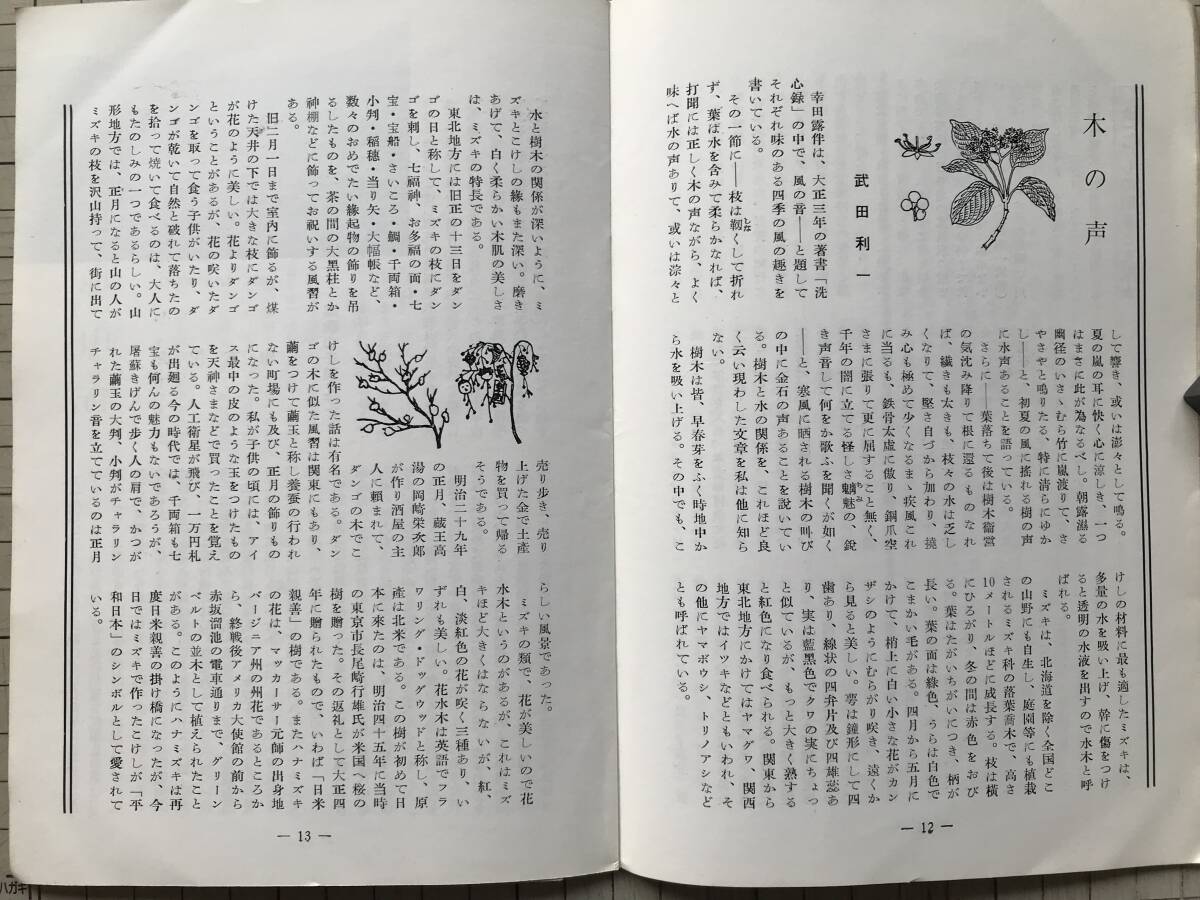 木の声
武田利一
幸田露伴は、大正三年の著書「洗
心録」の中で、風の音――と題して
それぞれ味のある四季の風の趣きを
書いている。
その一節に――枝は靱くして折れ
しな
ず、葉は水を含みて柔らかなれば、
打聞には正しく木の声ながら、よく
味へば水の声ありて、或いは淙々と
して響き、或いは澎々として鳴る。
夏の嵐の耳に快く心に涼しき、一つ
はまさに此が為なるべし。朝露滋き
幽径のいさゝむら竹に嵐渡りて、さ
やさやと鳴りたる、特に清らにゆか
し――と、初夏の風に搖れる樹の声
に水声あることを語っている。
さらに――葉落ちて後は樹木衞営
の気沈み降りて根に還るものなれ
ば、繊きも太きも、枝々の水は乏し
くなりて、堅さ自づから加わり、撓
み心も極めて少くなるまゝ疾風これ
に当るも、鉄骨太虚に傲り、銅爪空
さまに張りて更に屈すること無く、
千年の闇に立てる怪しき魑魅の、鋭
ちみ
き声音して何をか歌ふを聞くが如く
――と、寒風に晒される樹木の叫び
の中に金石の声あることを説いてい
る。樹木と水の関係を、これほど良
く云い現わした文章を私は他に知ら
ない。
樹木は皆、早春芽をふく時地中か
ら水を吸い上げる。その中でも、こ
けしの材料に最も適したミズキは、
多量の水を吸い上げ、幹に傷をつけ
ると透明の水液を出すので水木と呼
ばれる。
ミズキは、北海道を除く全国どこ
の山野にも自生し、庭園等にも植栽
されるミズキ科の落葉喬木で、高さ
10メートルほどに成長する。枝は横
にひろがり、冬の間は赤色をおび
る。葉はたがいちがいにつき、柄が
長い。葉の面は緑色、うらは白色で
こまかい毛がある。四月から五月に
かけて、梢上に白い小さな花がカン
ザシのようにむらがり咲き、遠くか
ら見ると美しい。萼は鐘形にして四
歯あり、線状の四弁片及び四雄蕊あ
り、実は藍黒色でクワの実にちょっ
と似ているが、もっと大きく熟する
と紅色になり食べられる。関東から
東北地方にかけてはヤマグワ、関西
地方ではイツキなどともいわれ、そ
の他にヤマボウシ、トリノアシなど
とも呼ばれている。
― 12 ―
水と樹木の関係が深いように、ミ
ズキとこけしの縁もまた深い。磨き
あげて、白く柔らかい木肌の美しさ
は、ミズキの特長である。
東北地方には旧正の十三日をダン
ゴの日と称して、ミズキの枝にダン
ゴを刺し、七福神、お多福の面・七
宝・宝船・さいころ・鯛・千両箱・
小判・稲穂・当り矢・大幅帳など、
数々のおめでたい縁起物の飾りを吊
るしたものを、茶の間の大黒柱とか
神棚などに飾ってお祝いする風習が
ある。
旧二月一日まで室内に飾るが、煤
けた天井の下では大きな枝にダンゴ
が花のように美しい。花よりダンゴ
ということがあるが、花の咲いたダ
ンゴを取って食う子供がいたり、ダ
ンゴが乾いて自然と破れて落ちたの
を拾って焼いて食べるのは、大人に
もたのしみの一つであるらしい。山
形地方では、正月になると山の人が
ミズキの枝を沢山持って、街に出て
売り歩き、売り
上げた金で土産
物を買って帰る
そうである。
明治二十九年
の正月、蔵王高
湯の岡崎栄次郎
が作り酒屋の主
人に頼まれて、
ダンゴの木でこ
けしを作った話は有名である。ダン
ゴの木に似た風習は関東にもあり、
繭をつけて繭玉と称し養蚕の行われ
ない町場にも及び、正月の飾りもの
になった。私が子供の頃には、アイ
ス最中の皮のような玉をつけたもの
を天神さまなどで買ったことを覚え
ている。人工衛星が飛び、一万円札
が出廻る今の時代では、千両箱も七
宝も何んの魅力もないであろうが、
屠蘇きげんで歩く人の肩で、かつが
れた繭玉の大判、小判がチャラリン
チャラリン音を立てているのは正月
らしい風景であった。
ミズキの類で、花が美しいので花
水木というのがあるが、これはミズ
キほど大きくはならないが、紅、
白、淡紅色の花が咲く三種あり、い
ずれも美しい。花水木は英語でフラ
ワリング・ドッグウッドと称し、原
産は北米である。この樹が初めて日
本に来たのは、明治四十五年に当時
の東京市長尾崎行雄氏が米国へ桜の
樹を贈った。その返礼として大正四
年に贈られたもので、いわば「日米
親善」の樹である。またハナミズキ
の花は、マッカーサー元師の出身地
バージニア州の州花であるところか
ら、終戦後アメリカ大使館の前から
赤坂溜池の電車通りまで、グリーン
ベルトの並木として植えられたこと
がある。このようにハナミズキは再
度日米親善の掛け橋になったが、今
日ではミズキで作ったこけしが「平
和日本」のシンボルとして愛されて
いる。
― 13 ―
ハガキ